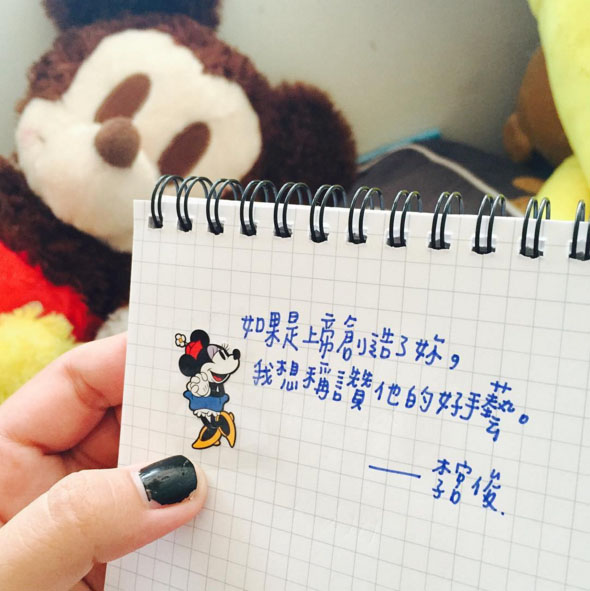 如果是上帝創造了妳，
我想稱讚他的好手藝。
——李宿俊